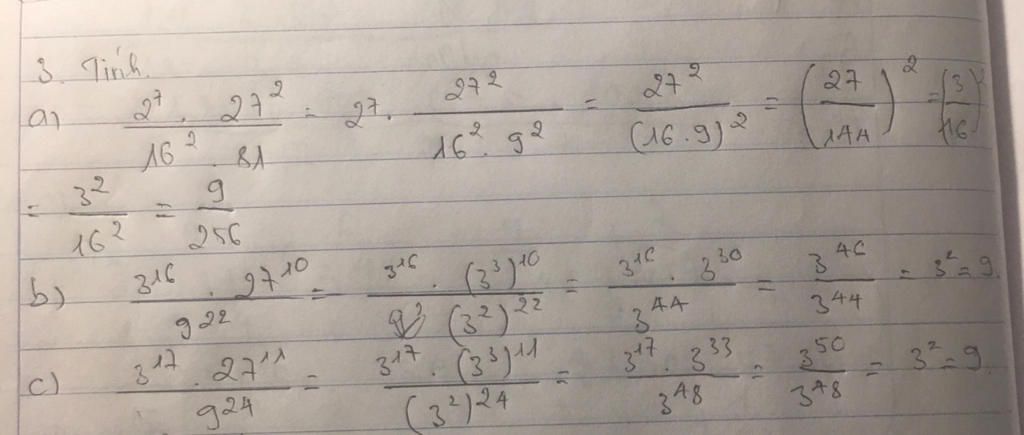 3. Tính.
a) \frac{2^7 . 27^2}{16^2 . 81} = 2^7 . \frac{27^2}{16^2 . 9^2} = \frac{27^2}{(16 . 9)^2} = (\frac{27}{144})^2 = (\frac{3}{16})^2
= \frac{3^2}{16^2} = \frac{9}{256}
b) \frac{3^{16} . 27^{10}}{9^{22}} = \frac{3^{16} . (3^3)^{10}}{(3^2)^{22}} = \frac{3^{16} . 3^{30}}{3^{44}} = \frac{3^{46}}{3^{44}} = 3^2 = 9.
c) \frac{3^{17} . 27^{11}}{9^{24}} = \frac{3^{17} . (3^3)^{11}}{(3^2)^{24}} = \frac{3^{17} . 3^{33}}{3^{48}} = \frac{3^{50}}{3^{48}} = 3^2 = 9.